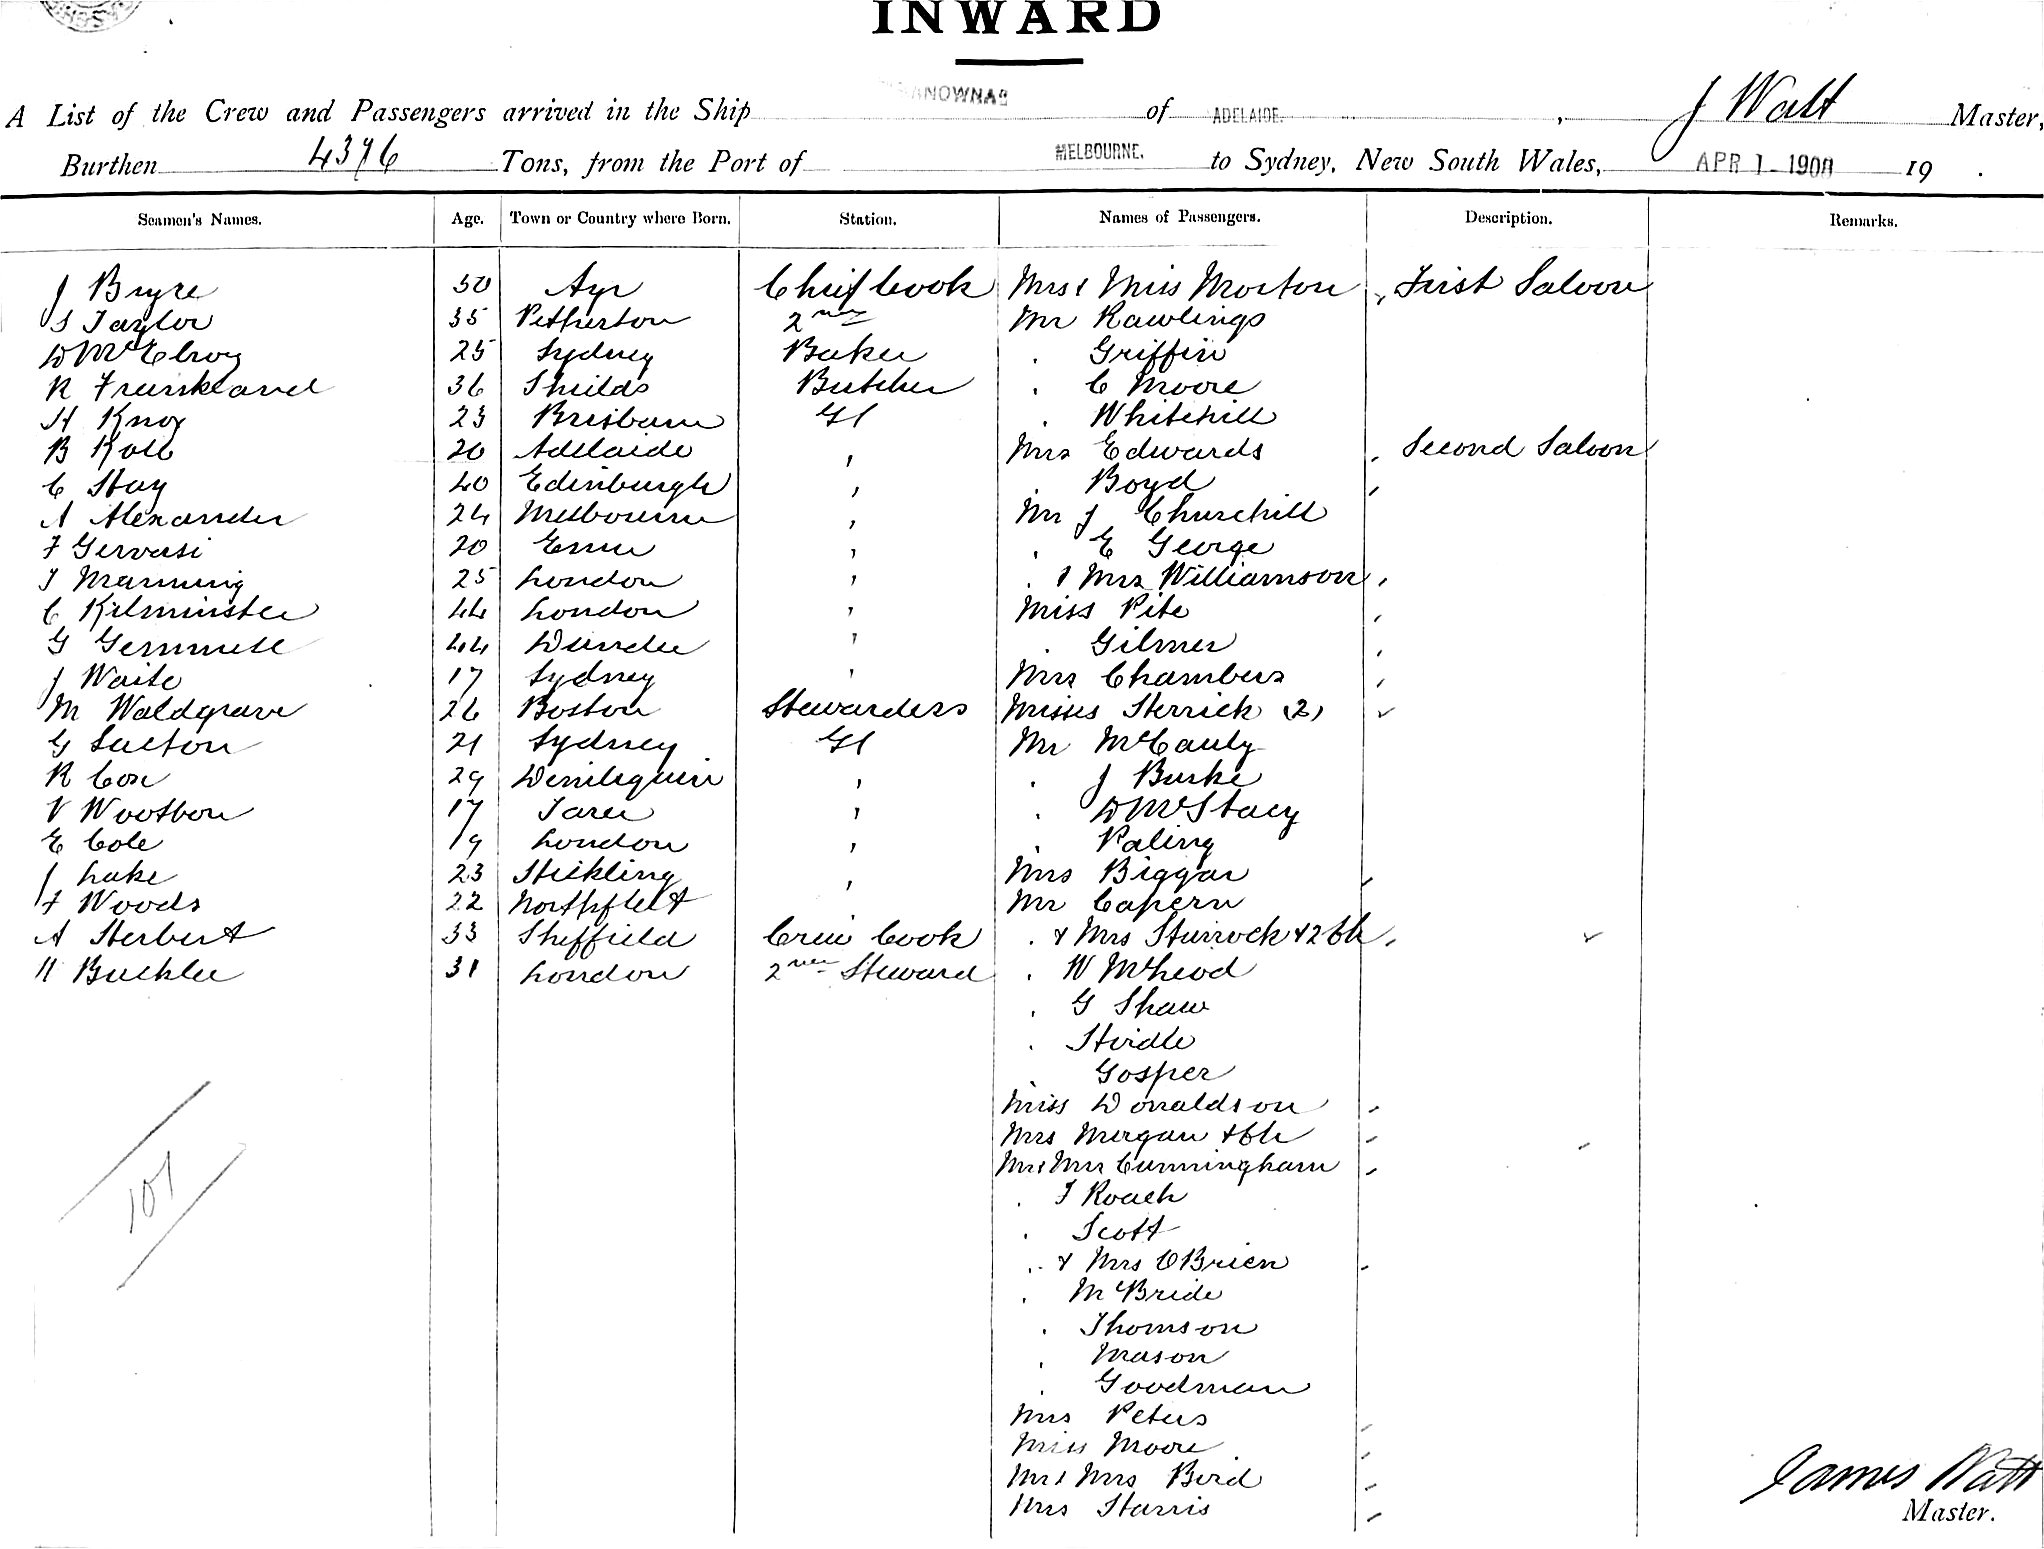 INWARD
A List of the Crew and Passengers arrived in the Ship ANOWNA of ADELAIDE. , J Watt Master,
Burthen 4376 Tons, from the Port of MELBOURNE. to Sydney, New South Wales, APR 1 - 1900 19 .
Seamen's Names. Age. Town or Country where Born. Station. Names of Passengers. Description. Remarks.
J Bryce 50 Ayr Chief Cook Mrs & Miss Morton , First Saloon
S Taylor 35 Petherton 2nd Mr Rawlings
D McElroy 25 Sydney Baker . Griffin
R Frankland 36 Shields Butcher . C Moore
H Knox 23 Brisbane Gl . Whitehill
B Kolb 20 Adelaide , Mrs Edwards , Second Saloon
C Hay 40 Edinburgh , . Boyd ,
A Alexander 24 Melbourne , Mr J Churchill
F Gervasi 20 , . E George
J Manning 25 London , . & Mrs Williamson ,
C Kilminster 44 London , Miss Pite ,
G Gemmell 44 Dundee , . Gilmer ,
J Waite 17 Sydney , Mrs Chambers ,
M Waldgrave 26 Boston Stewardess Misses Herrick (2) ✓
G Sutton 21 Sydney Gl Mr McCauly
R Cox 29 Deniliquin , . J Burke
V Wootton 17 Taree , . D McStacy
E Cole 19 London , . Paling
J Lake 23 Stickling , Mrs Biggar ,
F Woods 22 Northfleet , Mr Capern
A Herbert 33 Sheffield Crew Cook . & Mrs Sturrock & 2 Ch , ✓
H Buckle 31 London 2nd Steward . W McLeod
. G Shaw
. Hirdle
. Gosper
Miss Donaldson ,
Mrs Morgan & Ch ,
Mr & Mrs Cunningham ,
. J Roach
. Scott
. & Mrs OBrien ,
. McBride
. Thomson
. Mason
. Goodman
Mrs Peters ,
Miss Moore ,
Mr & Mrs Bird ,
Mrs Harris ,
107
James Watt
Master.